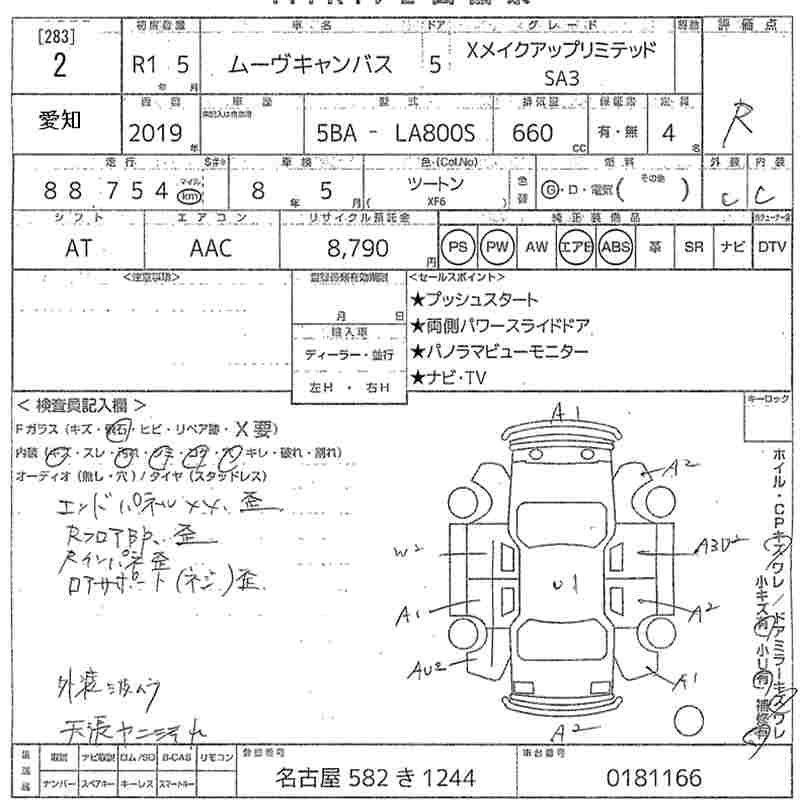 [283]
2
初度登録
R1 5
年 月
車名
ムーヴキャンバス
ドア
5
グレード
XメイクアップリミテッドSA3
評価点
R
愛知
2019
年
型式
5BA - LA800S
排気量
660
CC
有・無
定員
4
名
走行
88,754
マイル
km
車検
8 年 5 月
色・(Col.No)
ツートン
XF6
色替
燃料
G・D・電気( その他 )
外装
C
内装
C
シフト
AT
エアコン
AAC
リサイクル預託金
8,790
円
純正装備品
PS PW AW エアB ABS 革 SR ナビ DTV
<注意事項>
月 日
輸入車
ディーラー・並行
左H・右H
<セールスポイント>
★プッシュスタート
★両側パワースライドドア
★パノラマビューモニター
★ナビ・TV
キーロック
<検査員記入欄>
Fガラス(キズ・飛石・ヒビ・リペア跡・X要)
内装(キズ・スレ・汚れ・シミ・コゲ・穴・キレ・破れ・割れ)
オーディオ(無し・穴)/タイヤ(スタッドレス)
エンドパネルXX、歪
RフロアBP、歪
Rインパネ歪
ロアサポート(ネジ)歪
外装
天張ヤニ汚れ
A1
A2
W2
A3
U1
A1
A2
AU2
A1
A2
ホイル・CPキズワレ/ドアミラーキズワレ
小キズ有 小U有 補修有
取説 ナビ取説 ロム/SD B-CAS リモコン
ナンバー スペアキー キーレス スマートキー
登録番号
名古屋 582 き 1244
車台番号
0181166